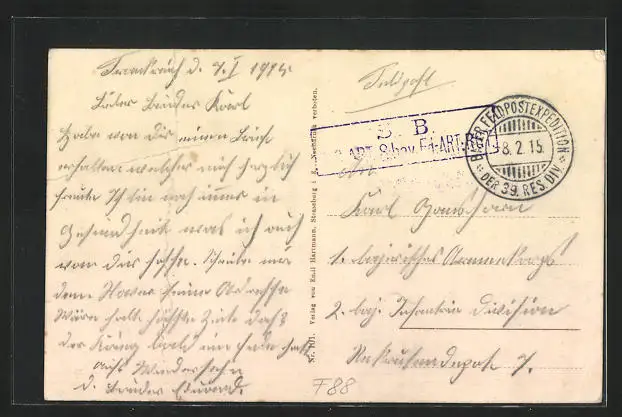 Frankreich d. 7. I 1915
Lieber Bruder Karl
Habe von dir einen Brief
erhalten welcher mich herzlich
freute Ich bin noch immer in
Gesundheit was ich auch
von dir hoffe. Schreibe mir
dem seine Adresse
Wäre halt Zeit daß
der Krieg bald ein Ende hat
Auf Wiedersehn
d. Bruder
Nr. 101. Verlag von Emil Hartmann, Strassburg i. E. Nachdruck verboten.
Feldpost
S. B.
ART. 8. bay. Fd-ART. R
BAYER. FELDPOSTEXPEDITION
8.2.15.
DER 39. RES. DIV.
An
Karl
1. bayerisches Armeekorps
2. bay. Infanterie Division
Rekrutendepot 7.
F88